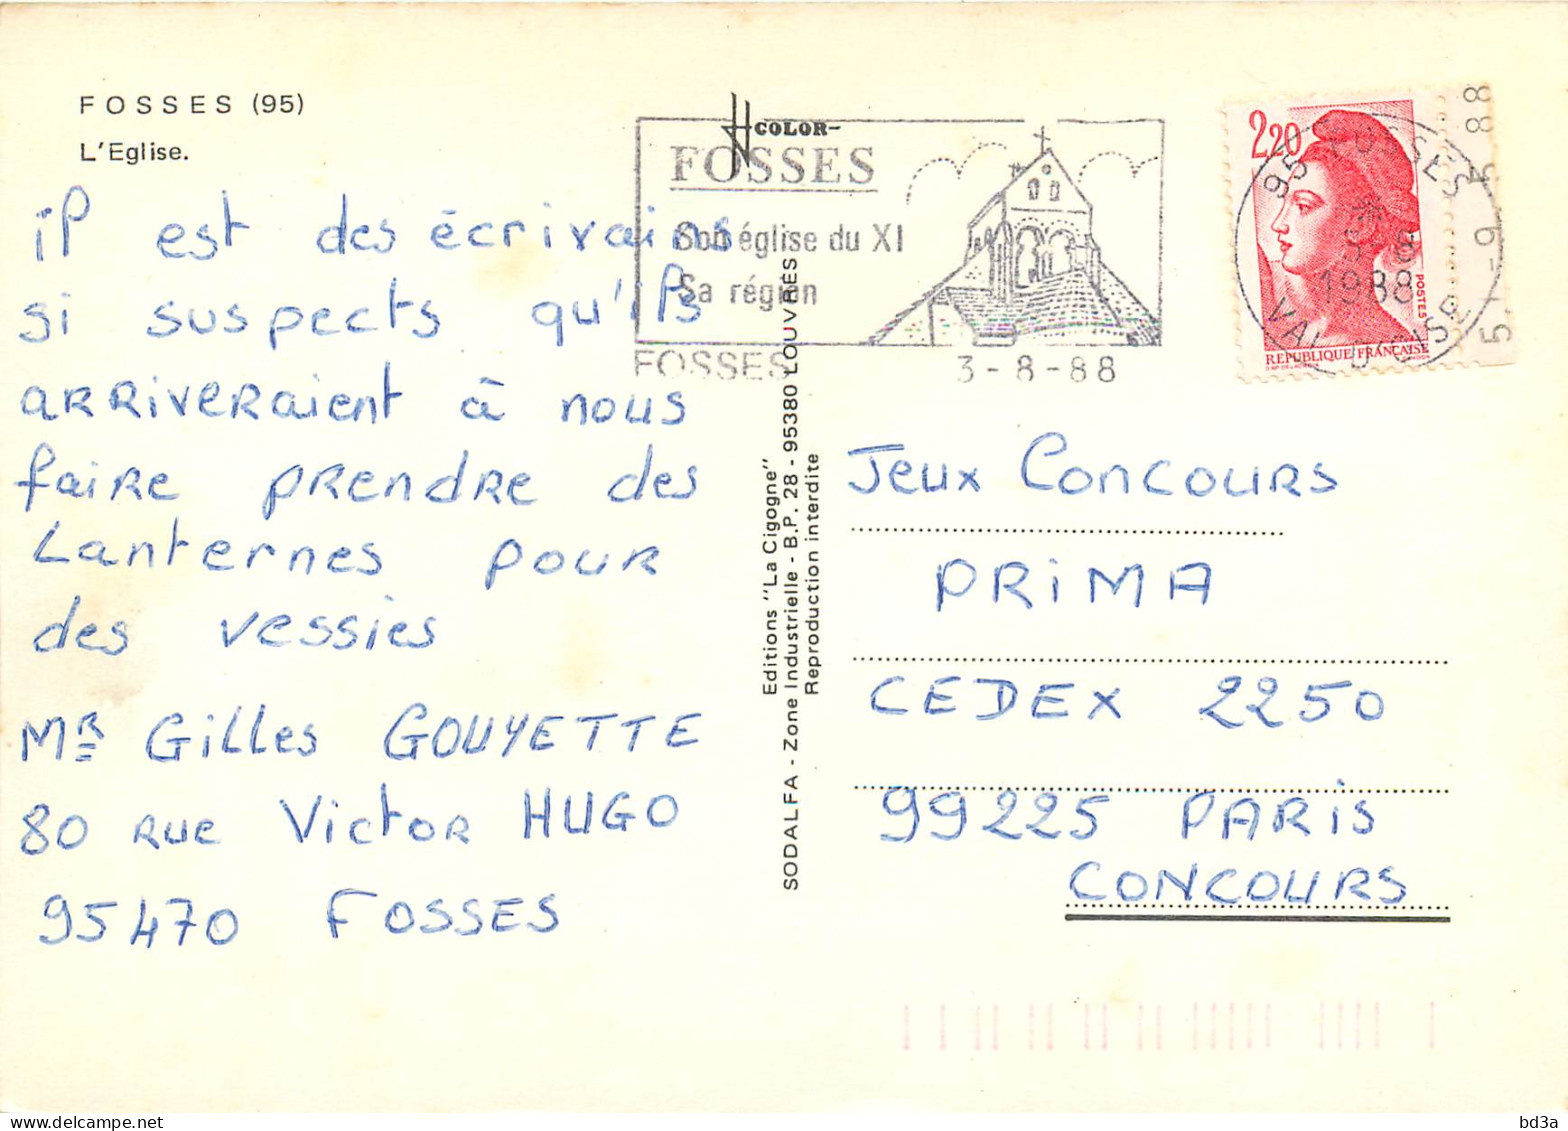 FOSSES (95)
L'Eglise.
il est des écrivains
si suspects qu'ils
arriveraient à nous
faire prendre des
Lanternes pour
des vessies
Mr Gilles GOUYETTE
80 rue Victor HUGO
95470 FOSSES
COLOR-
FOSSES
Son église du XI
Sa région
FOSSES
3-8-88
Editions "La Cigogne"
SODALFA - Zone Industrielle - B.P. 28 - 95380 LOUVRES
Reproduction interdite
2,20
POSTES
REPUBLIQUE FRANÇAISE
95 FOSSES
1988
VAL D'OISE
Jeux Concours
PRiMA
CEDEX 2250
99225 PARiS
CONCOURS
bd3a